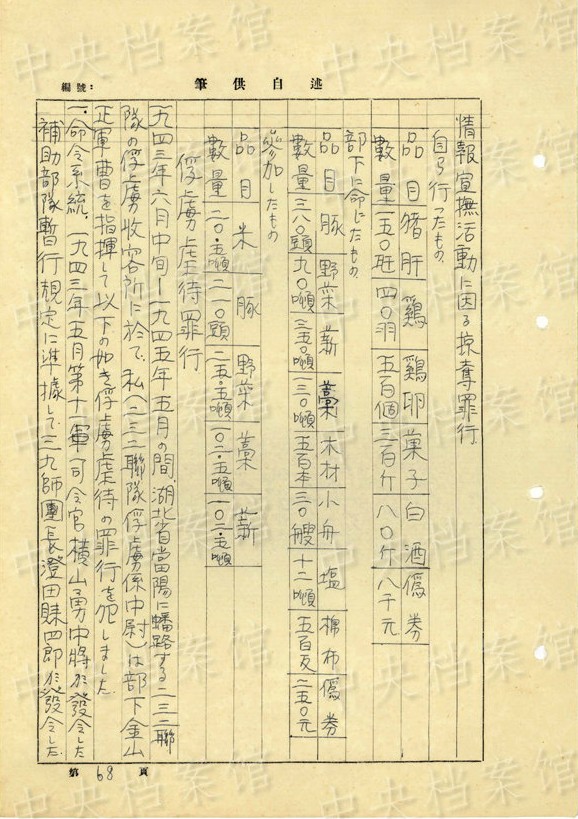 編號：
筆供自述
情報宣撫活動に因る掠奪罪行
自ら行ったもの
品目 猪肝 鶏 鶏卵 菓子 白酒 僞券
數量 一五〇斤 四〇羽 五百個 三百斤 八〇斤 八千元
部下に命じたもの
品目 豚 野菜 薪 藁 木材 小舟 塩 棉布 僞券
數量 三八〇頭 九〇噸 三五〇噸 一三〇噸 五百本 三〇艘 十二噸 五百反 二五〇元
參加したもの
品目 米 豚 野菜 藁 薪
數量 二〇.五噸 二一〇頭 二五.五噸 一〇二.五噸 一〇二.五噸
俘虜虐待罪行
一九四三年六月中旬ー一九四五年五月の間、湖北省當陽に蟠踞する二三二聯
隊の俘虜收容所に於て、私（二三二聯隊俘虜係中尉）は部下金山
正軍曹を指揮して以下の如き俘虜虐待の罪行を犯しました
一.命令系統、一九四三年五月第十一軍司令官橫山勇中將が發令した
補助部隊暫行規定に準據して三九師團長澄田賚四郎が發令した
第68頁
中央档案馆